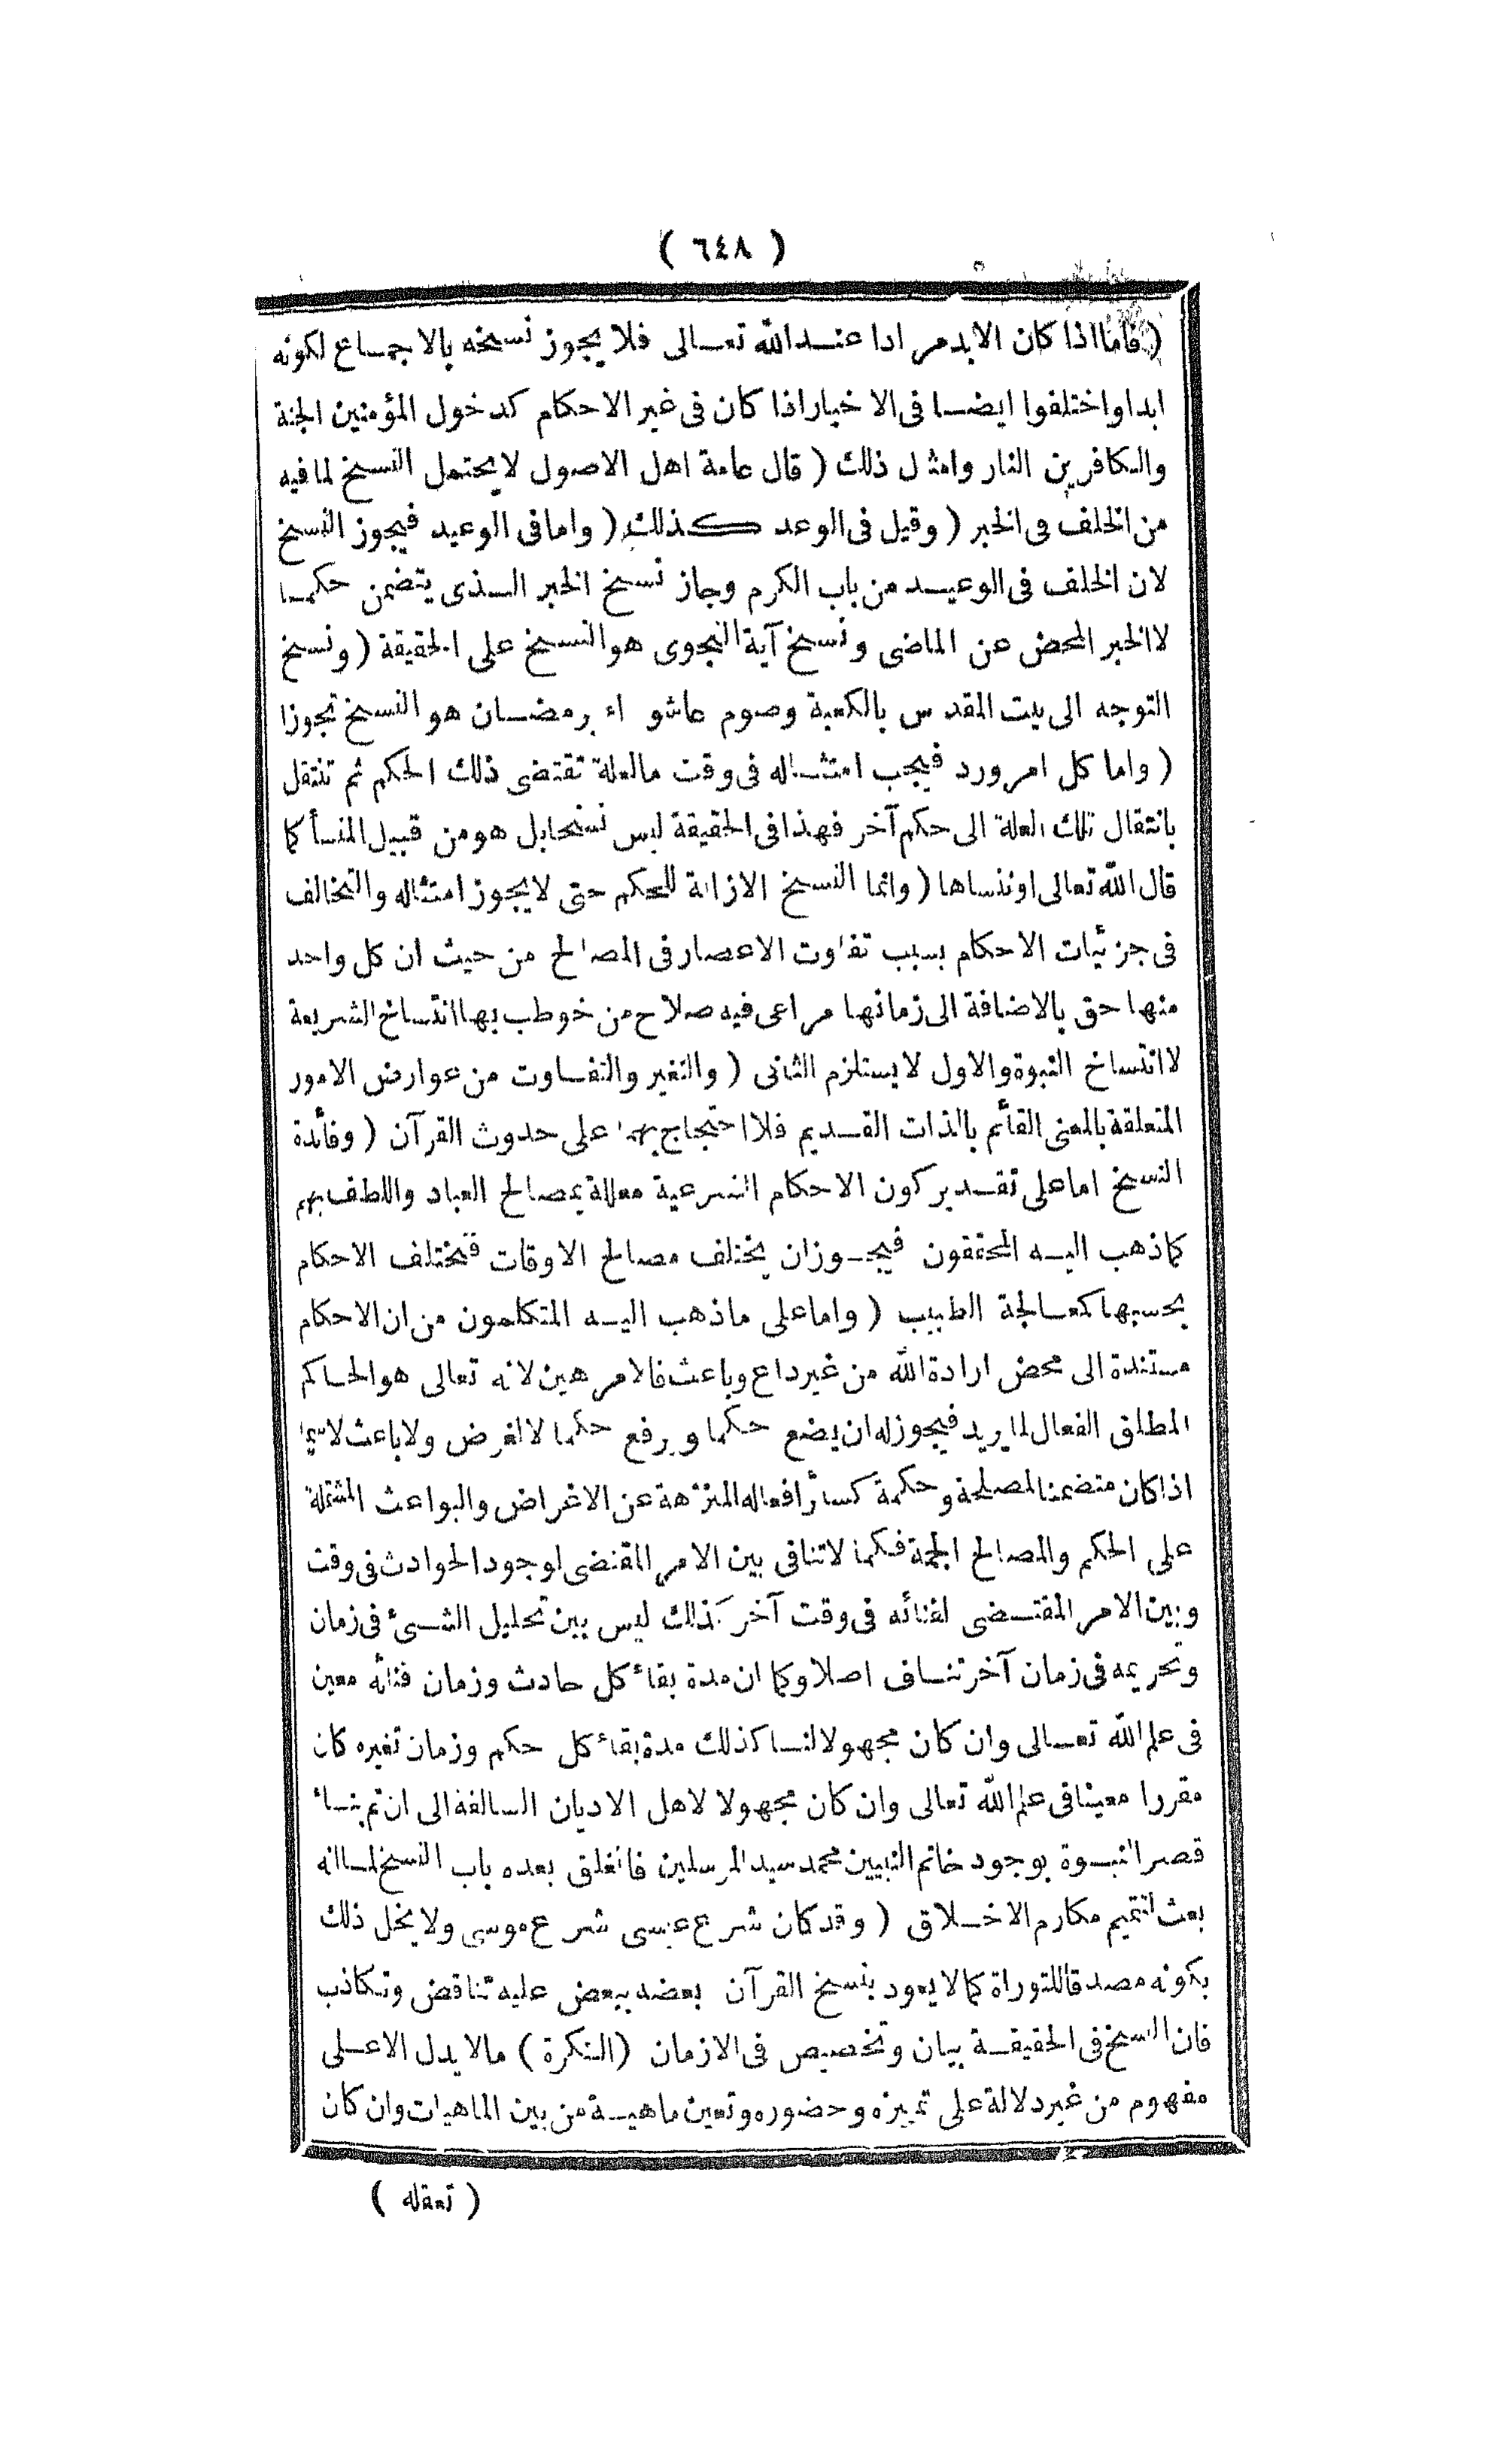 ( ٦٤٨ )
( فأما اذا كان الابد مرادا عند الله تعالى فلا يجوز نسخه بالاجماع لكونه
ابدا واختلفوا ايضا فى الاخبار اذا كان فى غير الاحكام كدخول المؤمنين الجنة
والكافرين النار وامثال ذلك ( قال عامة اهل الاصول لا يحتمل النسخ لما فيه
من الخلف فى الخبر ( وقيل فى الوعد كذلك ( واما فى الوعيد فيجوز النسخ
لان الخلف فى الوعيد من باب الكرم وجاز نسخ الخبر الذى يتضمن حكما
لا الخبر المحض عن الماضى ونسخ آية النجوى هو النسخ على الحقيقة ( ونسخ
التوجه الى بيت المقدس بالكعبة وصوم عاشوراء برمضان هو النسخ تجوزا
( واما كل امر ورد فيجب امتثاله فى وقت ما لعلة تقتضى ذلك الحكم ثم تنتقل
بانتقال تلك العلة الى حكم آخر فهذا فى الحقيقة ليس نسخا بل هو من قبيل المنسأ كما
قال الله تعالى او ننساها ( وانما النسخ الازالة للحكم حتى لا يجوز امتثاله والتخالف
فى جزئيات الاحكام بسبب تفاوت الاعصار فى المصالح من حيث ان كل واحد
منها حق بالاضافة الى زمانها مراعى فيه صلاح من خوطب بها انتساخ الشريعة
لا انتساخ النبوة والاول لا يستلزم الثانى ( والتغير والتفاوت من عوارض الامور
المتعلقة بالمعنى القائم بالذات القديم فلا احتجاج بهما على حدوث القرآن ( وفائدة
النسخ اما على تقدير كون الاحكام الشرعية معللة بمصالح العباد واللطف بهم
كما ذهب اليه المحققون فيجوز ان يختلف مصالح الاوقات فتختلف الاحكام
بحسبها كمعالجة الطبيب ( واما على ما ذهب اليه المتكلمون من ان الاحكام
مستندة الى محض ارادة الله من غير داع وباعث فالامر هين لانه تعالى هو الحاكم
المطلق الفعال لما يريد فيجوز له ان يضع حكما ويرفع حكما لا لغرض ولا باعث لا سيما
اذا كان متضمنا لمصلحة وحكمة كسائر أفعاله المنزهة عن الاغراض والبواعث المشتملة
على الحكم والمصالح الجمة فكما لا تنافى بين الامر المقتضى لوجود الحوادث فى وقت
وبين الامر المقتضى لفنائه فى وقت آخر كذلك ليس بين تحليل الشئ فى زمان
وتحريمه فى زمان آخر تناف اصلا وكما ان مدة بقاء كل حادث وزمان فنائه معين
فى علم الله تعالى وان كان مجهولا لنا كذلك مدة بقاء كل حكم وزمان تغيره كان
مقررا معينا فى علم الله تعالى وان كان مجهولا لاهل الاديان السالفة الى ان تم بناء
قصر النبوة بوجود خاتم النبيين محمد سيد المرسلين فانغلق بعده باب النسخ لما انه
بعث لتتميم مكارم الاخلاق ( وقد كان شرع عيسى شرع موسى ولا يخل ذلك
بكونه مصدقا للتوراة كما لا يعود بنسخ القرآن بعضه ببعض عليه تناقض وتكاذب
فان النسخ فى الحقيقة بيان وتخصيص فى الازمان (النكرة) ما لا يدل الا على
مفهوم من غير دلالة على تمييزه وحضوره وتعين ماهيـة من بين الماهيات وان كان
( تعقله )